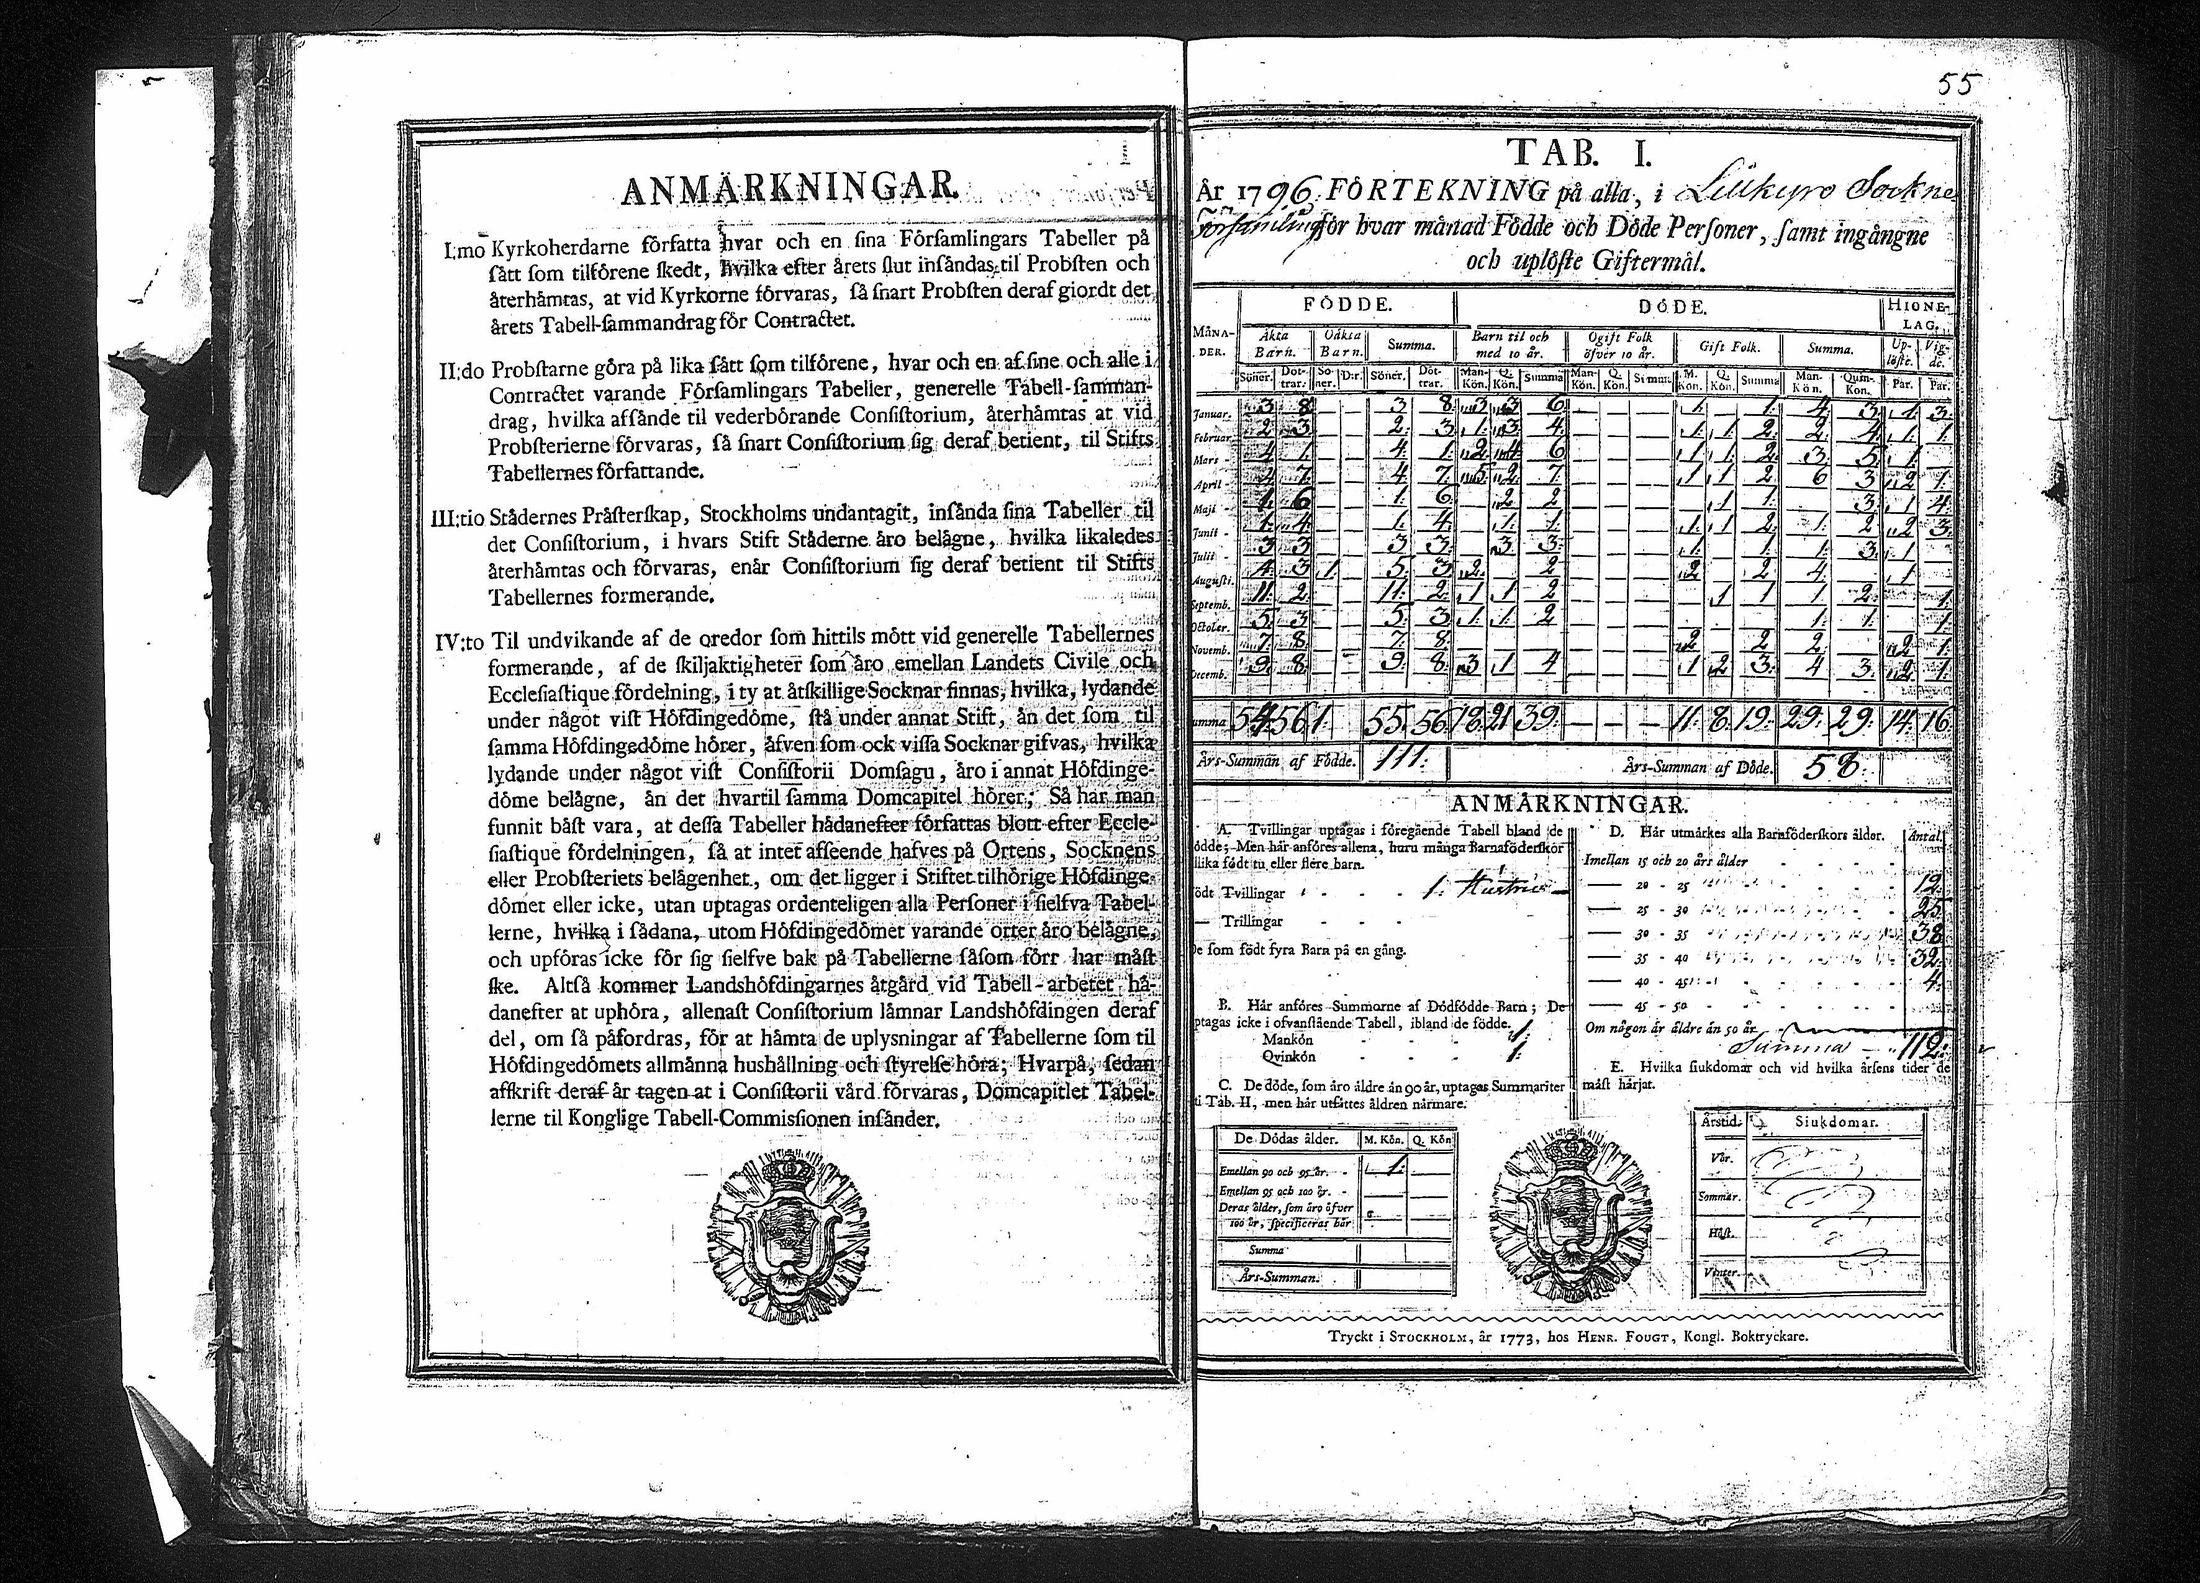 ANMÄRKNINGAR.
I:mo Kyrkoherdarne författa hvar och en sina Församlingars Tabeller på
sätt som tilförene skedt, hvilka efter årets slut insändas til Probsten och
återhämtas, at vid Kyrkorne förvaras, så snart Probsten deraf giordt det
årets Tabell-sammandrag för Contractet.
II:do Probstarne göra på lika sätt som tilförene, hvar och en af sine och alle i
Contractet varande Församlingars Tabeller, generelle Tabell-samman-
drag, hvilka afsände til vederbörande Consistorium, återhämtas at vid
Probsterierne förvaras, så snart Consistorium sig deraf betient, til Stifts
Tabellernes författande.
III:tio Städernes Prästerskap, Stockholms undantagit, insända sina Tabeller til
det Consistorium, i hvars Stift Städerne äro belägne, hvilka likaledes
återhämtas och förvaras, enär Consistorium sig deraf betient til Stifts
Tabellernes formerande.
IV:to Til undvikande af de oredor som hittils mött vid generelle Tabellernes
formerande, af de skiljaktigheter som äro emellan Landets Civile och
Ecclesiastique fördelning, i ty at åtskillige Socknar finnas, hvilka, lydande
under något vist Höfdingedöme, stå under annat Stift, än det som til
samma Höfdingedöme hörer, äfven som ock vissa Socknar gifvas, hvilka
lydande under något vist Consistorii Domsagu, äro i annat Höfdinge-
döme belägne, än det hvartil samma Domcapitel hörer; Så har man
funnit bäst vara, at dessa Tabeller hädanefter författas blott efter Eccle-
siastique fördelningen, så at intet afseende hafves på Ortens, Socknens
eller Probsteriets belägenhet, om det ligger i Stiftet tilhörige Höfdinge-
dömet eller icke, utan uptagas ordenteligen alla Personer i sielfva Tabel-
lerne, hvilka i sådana, utom Höfdingedömet varande orter äro belägne,
och upföras icke för sig sielfve bak på Tabellerne såsom förr har måst
ske. Altså kommer Landshöfdingarnes åtgärd vid Tabell-arbetet hä-
danefter at uphöra, allenast Consistorium lämnar Landshöfdingen deraf
del, om så påfordras, för at hämta de uplysningar af Tabellerne som til
Höfdingedömets allmänna hushållning och styrelse höra; Hvarpå, sedan
affkrift deraf är tagen at i Consistorii vård förvaras, Domcapitlet Tabel-
lerne til Konglige Tabell-Commissionen insänder.
55
TAB. I.
År 1796 FÖRTEKNING på alla, i Lillkyro Sockne
Församling för hvar månad Födde och Döde Personer, samt ingångne
och uplöste Giftermål.
MÅNA-DER. FÖDDE. DÖDE. HIONE-LAG.
Äkta Barn. Oäkta Barn. Summa. Barn til och med 10 år. Ogift Folk öfver 10 år. Gift Folk. Summa. Up-löste. Vig-de.
Söner. Döt-trar. Sö-ner. D:r. Söner. Döt-trar. Man-Kön. Q. Kön. Summa Man-Kön. Q. Kön. Summa M. Kön. Q. Kön. Summa Man-Kön. Quin-Kon. Par. Par.
Januar. 3 8 — — 3 8 3 3 6 — — — 1 — 1 4 3 1 3
Februar. 2 3 — — 2 3 1 3 4 — — — 1 1 2 2 4 1 1
Mars 4 1 — — 4 1 2 4 6 — — — 1 1 2 3 5 1 —
April 4 7 — — 4 7 5 2 7 — — — 1 1 2 6 3 2 1
Maji 1 6 — — 1 6 — 2 2 — — — — 1 1 — 3 1 4
Junii 1 4 — — 1 4 — 1 1 — — — 1 1 2 1 2 2 3
Julii 3 3 — — 3 3 — 3 3 — — — 1 — 1 1 3 1 —
Augusti. 4 3 1 — 5 3 2 — 2 — — — 2 — 2 4 — 1 —
Septemb. 11 2 — — 11 2 1 1 2 — — — — 1 1 1 2 — 1
October. 5 3 — — 5 3 1 1 2 — — — — — — 1 1 — 1
Novemb. 7 8 — — 7 8 — — — — — — 2 — 2 2 — 2 1
Decemb. 9 8 — — 9 8 3 1 4 — — — 1 2 3 4 3 2 1
umma 54 56 1 55 56 18 21 39 — — — 11 8 19 29 29 14 16
Års-Summan af Födde. 111: Års-Summan af Döde. 58:
ANMÄRKNINGAR.
A. Tvillingar uptagas i föregående Tabell bland de
ödde; Men här anföres allena, huru många Barnaföderskor
lika födt tu eller flere barn.
ödt Tvillingar 1. Hustru
— Trillingar
De som födt fyra Barn på en gång.
B. Här anföres Summorne af Dödfödde Barn; De
ptagas icke i ofvanstående Tabell, ibland de födde.
Mankön 1.
Qvinkön 1.
C. De döde, som äro äldre än 90 år, uptagas Summariter
i Tab. II, men här utsättes åldren närmare.
De Dödas ålder. M. Kön. Q. Kön
Emellan 90 och 95 år. 1. —
Emellan 95 och 100 år. — —
Deras ålder, som äro öfver
100 år, specificeras här
Summa
Års-Summan.
D. Här utmärkes alla Barnföderskors ålder. Antal
Imellan 15 och 20 års ålder
— 20 - 25 12
— 25 - 30 25
— 30 - 35 38
— 35 - 40 32
— 40 - 45 4
— 45 - 50
Om någon är äldre än 50 år
Summa 112:
E. Hvilka siukdomar och vid hvilka årsens tider de
mäst härjat.
Årstid. Siukdomar.
Vår.
Sommar.
Höst.
Vinter.
Tryckt i STOCKHOLM, år 1773, hos HENR. FOUGT, Kongl. Boktryckare.